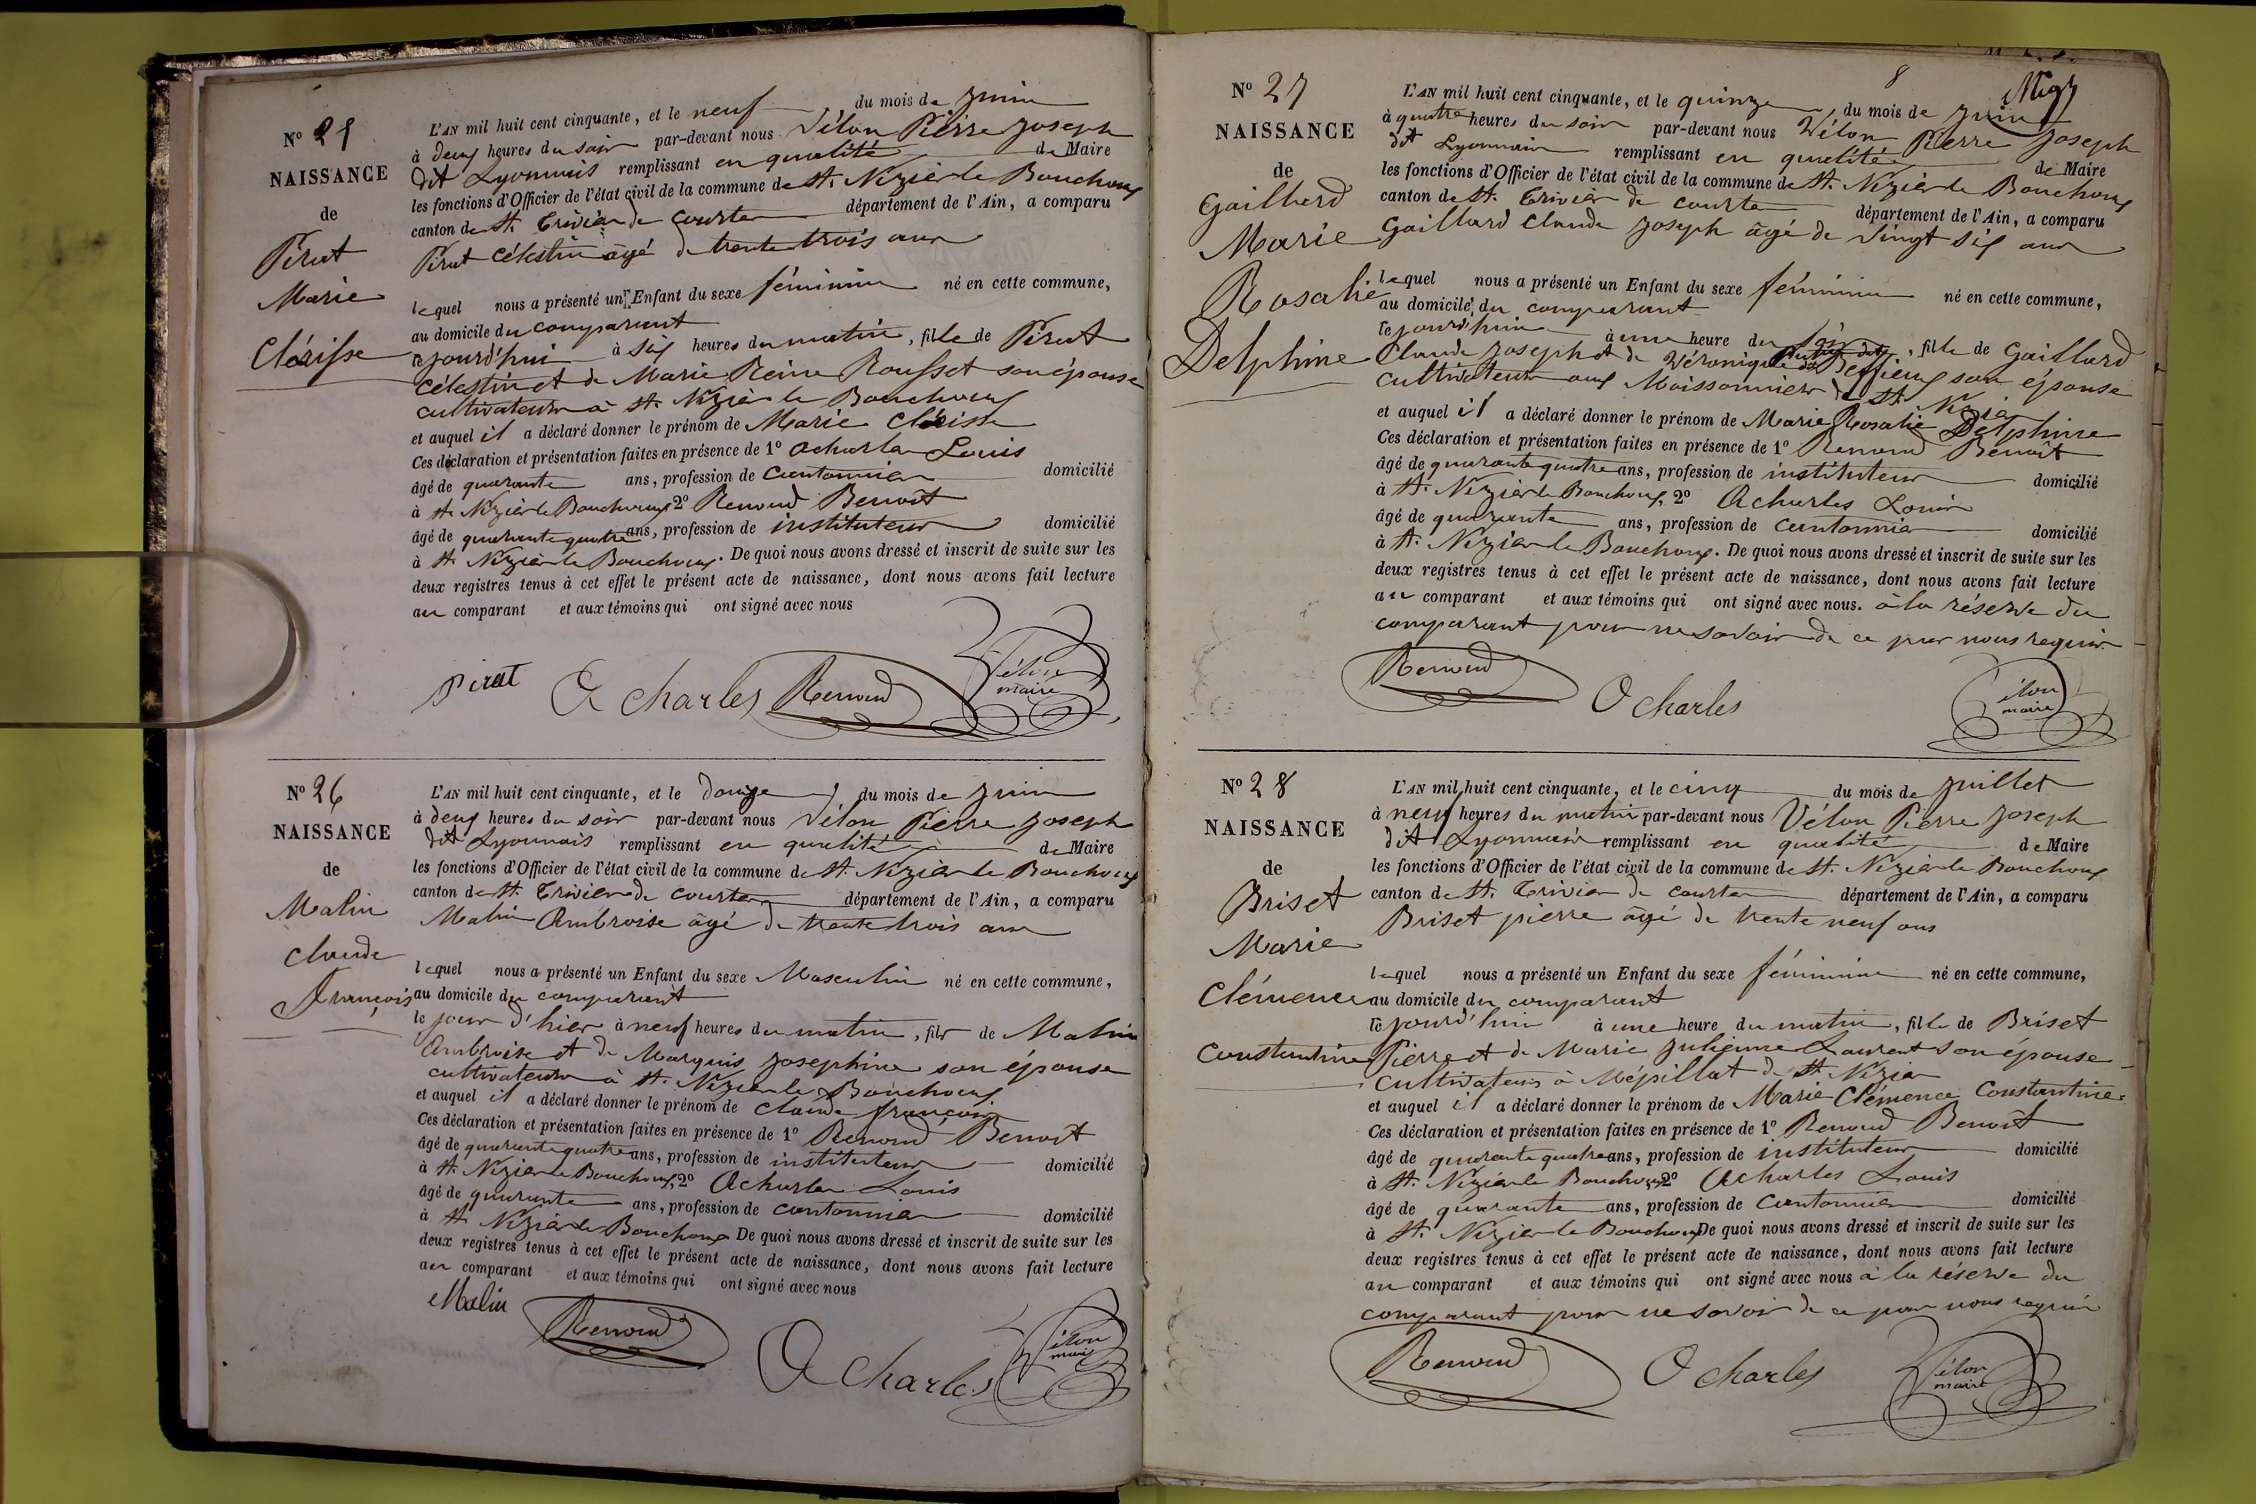 N° 25
NAISSANCE
de
Pirat
Marie
Clérisse
L'AN mil huit cent cinquante, et le neuf du mois de juin
à deux heures du soir par-devant nous Vélon Pierre Joseph
dit Lyonnais remplissant en qualité de Maire
les fonctions d'Officier de l'état civil de la commune de St. Nizier le Bouchoux
canton de St. Trivier de Courtes département de l'Ain, a comparu
Pirat Célestin âgé de trente trois ans
lequel nous a présenté un Enfant du sexe féminin né en cette commune,
au domicile du comparant
le jourd'hui à six heures du matin, fille de Pirat
Célestin et de Marie Reine Rousset son épouse
cultivateurs à St. Nizier le Bouchoux
et auquel il a déclaré donner le prénom de Marie
Ces déclaration et présentation faites en présence de 1° Acharles Louis
âgé de quarante ans, profession de cantonnier domicilié
à St. Nizier le Bouchoux 2° Renoud Benoît
âgé de quarante quatre ans, profession de instituteur domicilié
à St. Nizier le Bouchoux. De quoi nous avons dressé et inscrit de suite sur les
deux registres tenus à cet effet le présent acte de naissance, dont nous avons fait lecture
au comparant et aux témoins qui ont signé avec nous
Pirat Acharles Renoud Vélon maire
N° 26
NAISSANCE
de
Malin
Claude
François
L'AN mil huit cent cinquante, et le douze du mois de juin
à deux heures du soir par-devant nous Vélon Pierre Joseph
dit Lyonnais remplissant en qualité de Maire
les fonctions d'Officier de l'état civil de la commune de St. Nizier le Bouchoux
canton de St. Trivier de Courtes département de l'Ain, a comparu
Malin Ambroise âgé de trente trois ans
lequel nous a présenté un Enfant du sexe Masculin né en cette commune,
au domicile du comparant
le jour d'hier à neuf heures du matin, fils de Malin
Ambroise et de Marquis Josephine son épouse
cultivateurs à St. Nizier le Bouchoux
et auquel il a déclaré donner le prénom de Claude françois
Ces déclaration et présentation faites en présence de 1° Renoud Benoît
âgé de quarante quatre ans, profession de instituteur domicilié
à St. Nizier le Bouchoux, 2° Acharles Louis
âgé de quarante ans, profession de cantonnier domicilié
à St. Nizier le Bouchoux De quoi nous avons dressé et inscrit de suite sur les
deux registres tenus à cet effet le présent acte de naissance, dont nous avons fait lecture
au comparant et aux témoins qui ont signé avec nous
Malin Renoud Acharles Vélon maire
8
N° 27
NAISSANCE
de
Gaillard
Marie
Rosalie
Delphine
L'AN mil huit cent cinquante, et le quinze du mois de juin
à quatre heures du soir par-devant nous Vélon Pierre Joseph
dit Lyonnais remplissant en qualité de Maire
les fonctions d'Officier de l'état civil de la commune de St. Nizier le Bouchoux
canton de St. Trivier de Courtes département de l'Ain, a comparu
Gaillard Claude Joseph âgé de vingt six ans
lequel nous a présenté un Enfant du sexe féminin né en cette commune,
au domicile du comparant
le jourd'hui à une heure du soir, fille de Gaillard
Claude Joseph et de Véronique son épouse
cultivateurs aux Moissonniers de St. Nizier
et auquel il a déclaré donner le prénom de Marie Rosalie Delphine
Ces déclaration et présentation faites en présence de 1° Renoud Benoît
âgé de quarante quatre ans, profession de instituteur domicilié
à St. Nizier le Bouchoux, 2° Acharles Louis
âgé de quarante ans, profession de cantonnier domicilié
à St. Nizier le Bouchoux. De quoi nous avons dressé et inscrit de suite sur les
deux registres tenus à cet effet le présent acte de naissance, dont nous avons fait lecture
au comparant et aux témoins qui ont signé avec nous. à la réserve du
comparant pour ne savoir de ce par nous requis
Renoud Acharles Vélon maire
N° 28
NAISSANCE
de
Briset
Marie
Clémence
Constantine
L'AN mil huit cent cinquante, et le cinq du mois de juillet
à neuf heures du matin par-devant nous Vélon Pierre Joseph
dit Lyonnais remplissant en qualité de Maire
les fonctions d'Officier de l'état civil de la commune de St. Nizier le Bouchoux
canton de St. Trivier de Courtes département de l'Ain, a comparu
Briset pierre âgé de trente neuf ans
lequel nous a présenté un Enfant du sexe féminin né en cette commune,
au domicile du comparant
le jourd'hui à une heure du matin, fille de Briset
Pierre et de Marie Julienne Laurent son épouse
cultivateurs à Mépillat de St. Nizier
et auquel il a déclaré donner le prénom de Marie Clémence Constantine
Ces déclaration et présentation faites en présence de 1° Renoud Benoît
âgé de quarante quatre ans, profession de instituteur domicilié
à St. Nizier le Bouchoux 2° Acharles Louis
âgé de quarante ans, profession de cantonnier domicilié
à St. Nizier le Bouchoux De quoi nous avons dressé et inscrit de suite sur les
deux registres tenus à cet effet le présent acte de naissance, dont nous avons fait lecture
au comparant et aux témoins qui ont signé avec nous à la réserve du
comparant pour ne savoir de ce par nous requis
Renoud Acharles Vélon maire